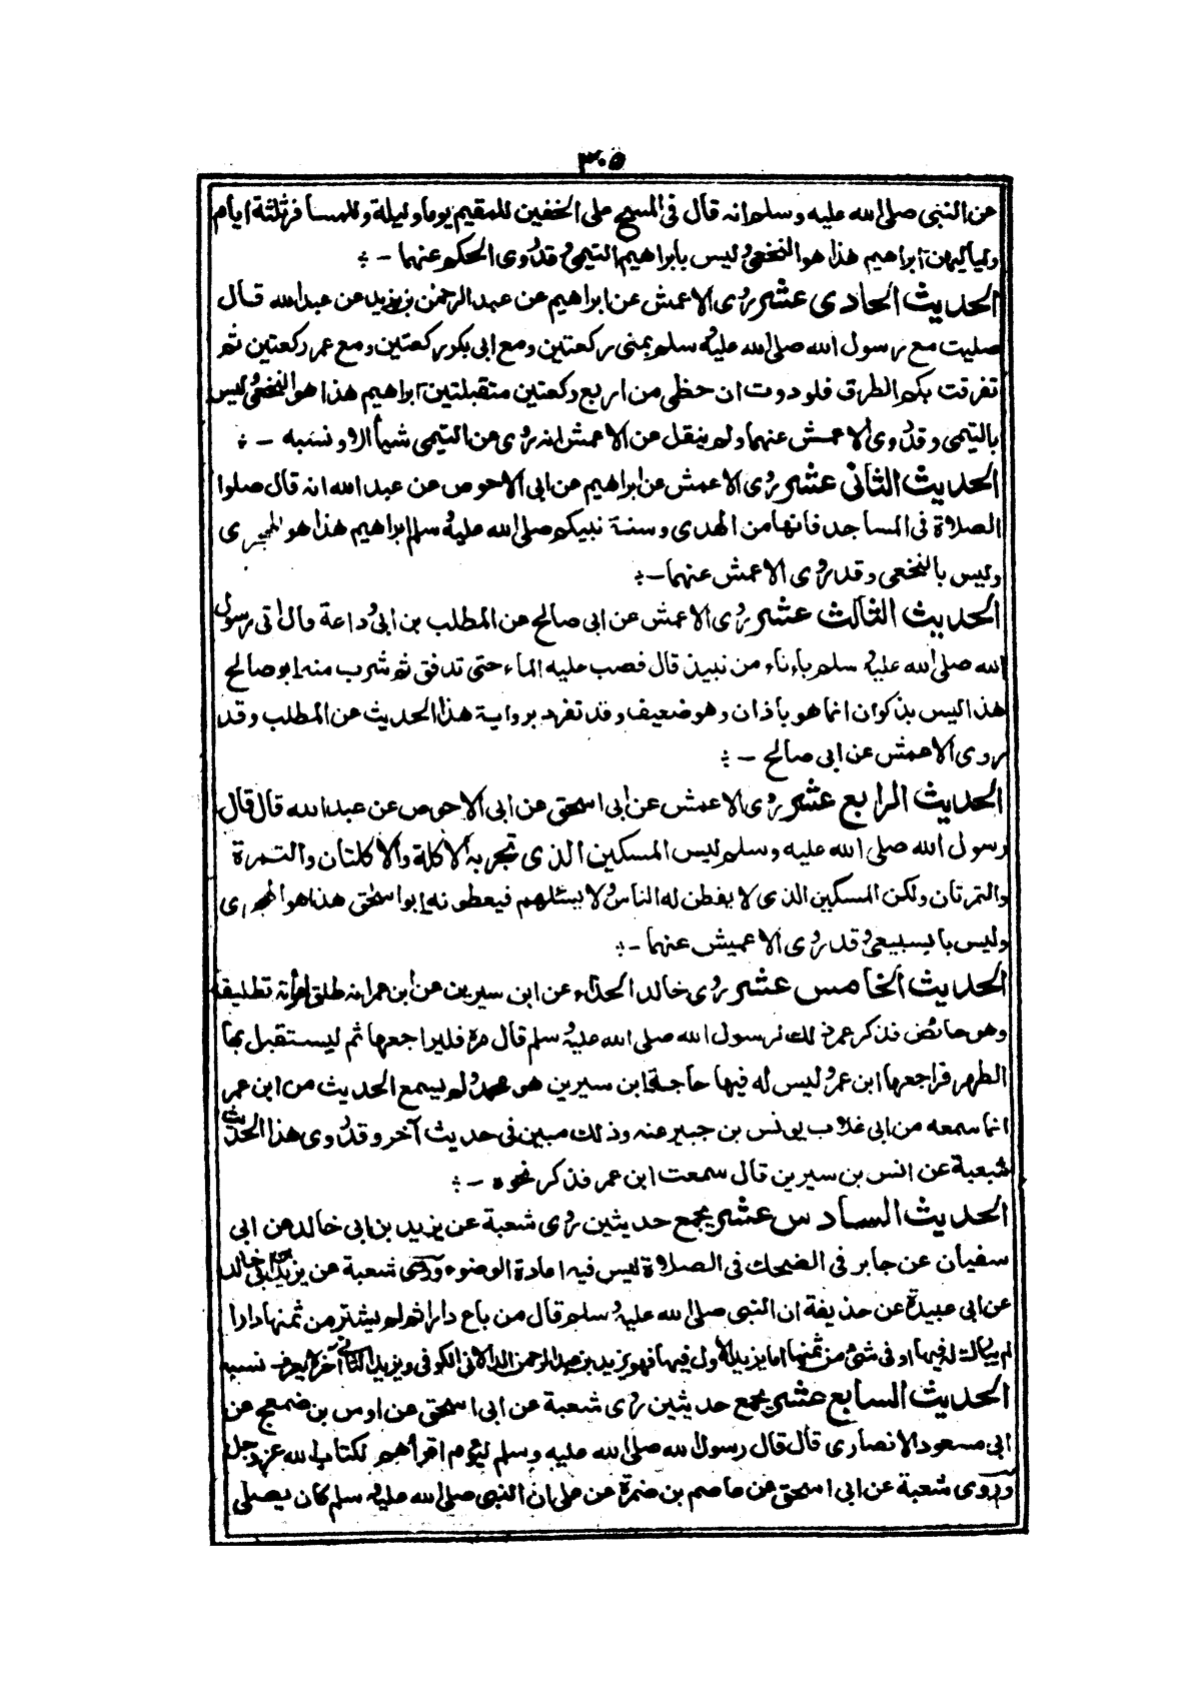 ٣٠٥
عن النبى صلى الله عليه وسلم انه قال فى المسح على الخفين للمقيم يوما وليلة وللمسافر ثلثة ايام
ولياليهن ابراهيم هذا هو النخعى وليس بابراهيم التيمى وقد روى الحكم عنهما -
الحديث الحادى عشر روى الاعمش عن ابراهيم عن عبد الرحمن بن يزيد عن عبد الله قال
صليت مع رسول الله صلى الله عليه وسلم بمنى ركعتين ومع ابى بكر ركعتين ومع عمر ركعتين ثم
تفرقت بكم الطرق فلوددت ان حظى من اربع ركعتين متقبلتين ابراهيم هذا هو النخعى وليس
بالتيمى وقد روى الاعمش عنهما ولم ينقل عن الاعمش انه روى عن التيمى شيأ الا ونسبه -
الحديث الثانى عشر روى الاعمش عن ابراهيم عن ابى الاحوص عن عبد الله انه قال صلوا
الصلاة فى المساجد فانها من الهدى وسنة نبيكم صلى الله عليه وسلم ابراهيم هذا هو الهجرى
وليس بالنخعى وقد روى الاعمش عنهما -
الحديث الثالث عشر روى الاعمش عن ابى صالح عن المطلب بن ابى وداعة قال اتى رسول
الله صلى الله عليه وسلم باناء من نبيذ قال فصب عليه الماء حتى تدفق ثم شرب منه ابو صالح
هذا ليس بذكوان انما هو باذان وهو ضعيف وقد تفرد برواية هذا الحديث عن المطلب وقد
روى الاعمش عن ابى صالح -
الحديث الرابع عشر روى الاعمش عن ابى اسحق عن ابى الاحوص عن عبد الله قال قال
رسول الله صلى الله عليه وسلم ليس المسكين الذى تجر به الاكلة والاكلتان والتمرة
والتمرتان ولكن المسكين الذى لا يفطن له الناس ولا يسئلهم فيعطونه ابو اسحق هذا هو الهجرى
وليس بالسبيعى وقد روى الاعمش عنهما -
الحديث الخامس عشر روى خالد الحذاء عن ابن سيرين عن ابن عمر انه طلق امرأته تطليقة
وهو حائض فذكر عمر ذلك لرسول الله صلى الله عليه وسلم قال مره فليراجعها ثم ليستقبل بها
الطهر فراجعها ابن عمر وليس له فيها حاجة ابن سيرين هو محمد ولم يسمع الحديث من ابن عمر
انما سمعه من ابى غلاب يونس بن جبير عنه وذلك مبين فى حديث آخر وقد روى هذا الحديث
شعبة عن انس بن سيرين قال سمعت ابن عمر فذكر نحوه -
الحديث السادس عشر يجمع حديثين روى شعبة عن يزيد بن ابى خالد عن ابى
سفيان عن جابر فى الضحك فى الصلاة ليس فيه اعادة الوضوء وروى شعبة عن يزيد بن ابى خالد
عن ابى عبيدة عن حذيفة ان النبى صلى الله عليه وسلم قال من باع دارا ثم لم يشتر من ثمنها دارا
لم يبارك له فيها او فى شئ من ثمنها اما يزيد الاول فيها فهو يزيد بن عبد الرحمن الدالانى الكوفى ويزيد الثانى آخر لا يعرف نسبه
الحديث السابع عشر يجمع حديثين روى شعبة عن ابى اسحق عن اوس بن ضمعج عن
ابى مسعود الانصارى قال قال رسول الله صلى الله عليه وسلم ليؤم اقرأهم لكتاب الله عزوجل
وروى شعبة عن ابى اسحق عن عاصم بن ضمرة عن على ان النبى صلى الله عليه وسلم كان يصلى